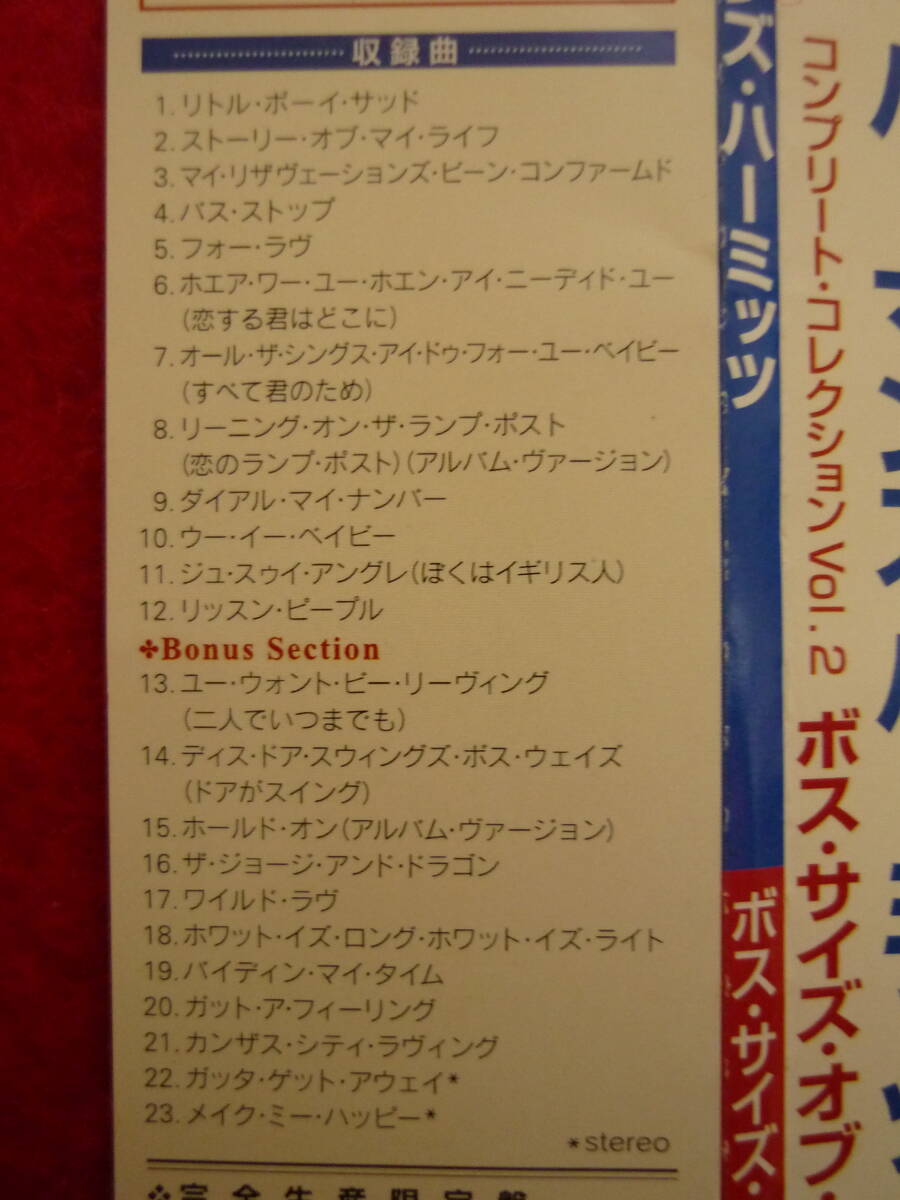 収録曲
1.リトル・ボーイ・サッド
2.ストーリー・オブ・マイ・ライフ
3.マイ・リザヴェーションズ・ビーン・コンファームド
4.バス・ストップ
5.フォー・ラヴ
6.ホエア・ワー・ユー・ホエン・アイ・ニーディド・ユー
(恋する君はどこに)
7.オール・ザ・シングス・アイ・ドゥ・フォー・ユー・ベイビー
(すべて君のため)
8.リーニング・オン・ザ・ランプ・ポスト
(恋のランプ・ポスト)(アルバム・ヴァージョン)
9.ダイアル・マイ・ナンバー
10.ウー・イー・ベイビー
11.ジュ・スゥイ・アングレ(ぼくはイギリス人)
12.リッスン・ピープル
✤Bonus Section
13.ユー・ウォント・ビー・リーヴィング
(二人でいつまでも)
14.ディス・ドア・スウィングズ・ボス・ウェイズ
(ドアがスイング)
15.ホールド・オン(アルバム・ヴァージョン)
16.ザ・ジョージ・アンド・ドラゴン
17.ワイルド・ラヴ
18.ホワット・イズ・ロング・ホワット・イズ・ライト
19.バイディン・マイ・タイム
20.ガット・ア・フィーリング
21.カンザス・シティ・ラヴィング
22.ガッタ・ゲット・アウェイ*
23.メイク・ミー・ハッピー*
*stereo
完全生産限定盤
ズ・ハーミッツ
ボス・サイズ・
コンプリート・コレクションVol.2
ボス・サイズ・オブ・